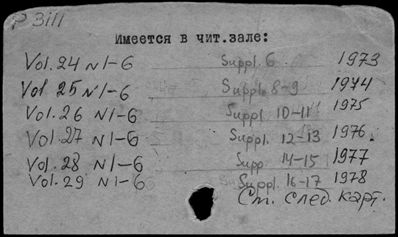 P 3111
Имеется в чит.зале:
Vol. 24 N 1-6 Suppl. 6 1973
Vol 25 N 1-6 Suppl. 8-9 1974
Vol. 26 N 1-6 Suppl 10-11 1975
Vol. 27 N 1-6 Suppl. 12-13 1976
Vol. 28 N 1-6 Supp 14-15 1977
Vol. 29 N 1-6 Suppl. 16-17 1978
См. след. карт.